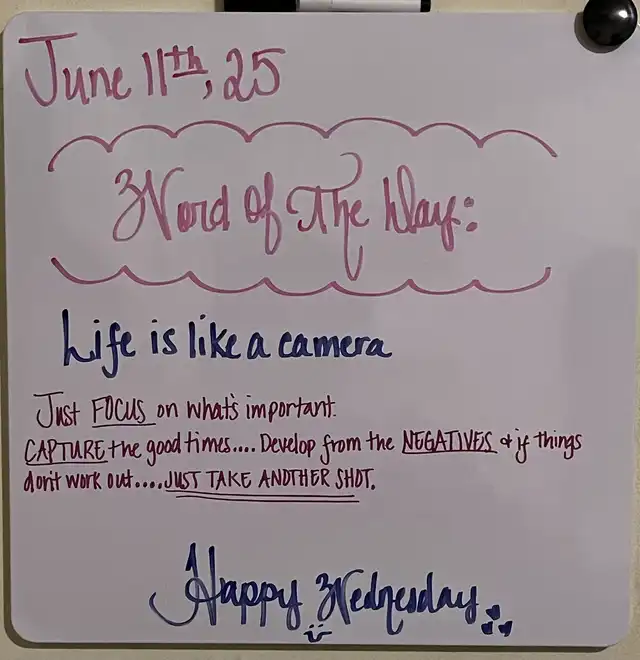 June 11th, 25
Word Of The Day:
Life is like a camera
Just FOCUS on what's important.
CAPTURE the good times.... Develop from the NEGATIVES & if things
don't work out.... JUST TAKE ANOTHER SHOT.
Happy Wednesday